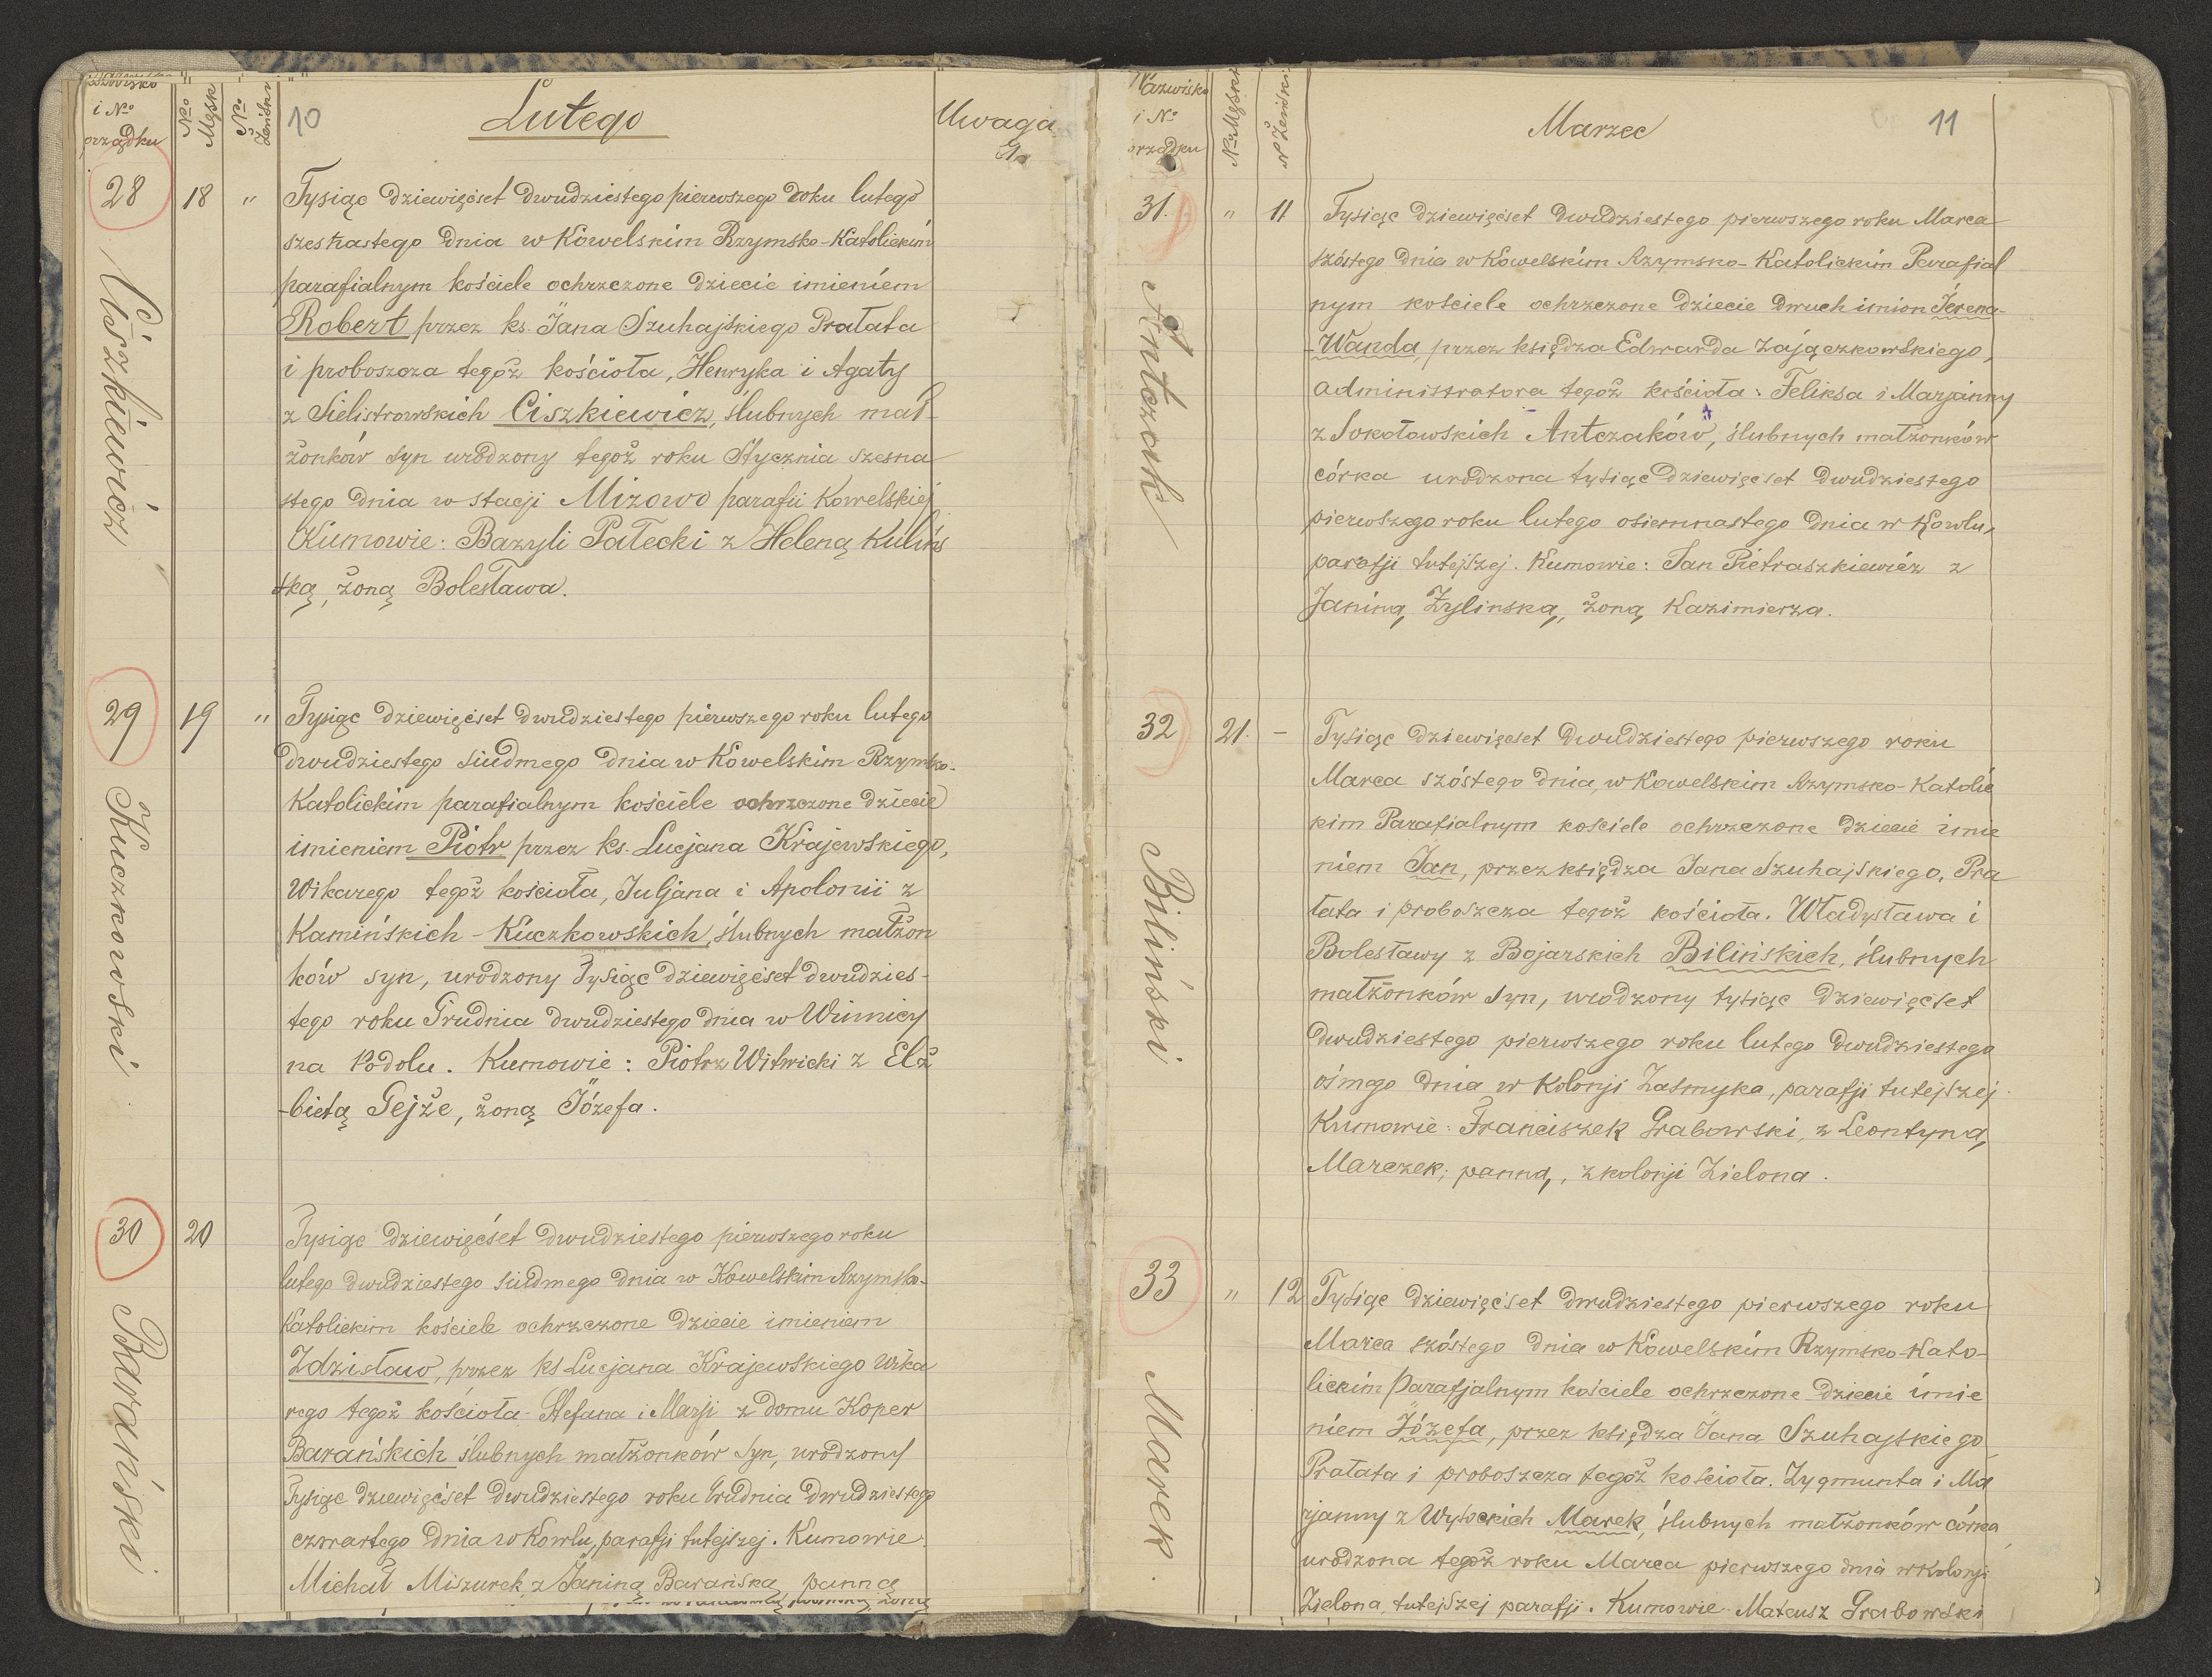 Nazwisko
i No
porządku
No Męsk
No Żeńskie
10
Lutego
Uwaga
28
18
"
Ciszkiewicz
Tysiąc dziewięćset dwudziestego pierwszego roku lutego
szesnastego dnia w Kowelskim Rzymsko-Katolickim
parafialnym kościele ochrzczone dziecie imieniem
Robert przez ks. Jana Szuhajskiego Prałata
i proboszcza tegoż kościoła, Henryka i Agaty
z Sielistrowskich Ciszkiewicz, ślubnych mał-
żonków syn urodzony tegoż roku Stycznia szesna
stego dnia w stacji Mizowo parafii Kowelskiej
Kumowie: Bazyli Pałecki z Heleną Kulińs
ką, żoną Bolesława.
29
19
"
Kuczkowski
Tysiąc dziewięćset dwudziestego pierwszego roku lutego
dwudziestego siudmego dnia w Kowelskim Rzymsko-
Katolickim parafialnym kościele ochrzczone dziecie
imieniem Piotr przez ks. Lucjana Krajewskiego,
Wikarego tegoż kościoła, Juljana i Apolonii z
Kamińskich - Kuczkowskich, ślubnych małżon
ków syn, urodzony Tysiąc dziewięćset dwudzies-
tego roku Grudnia dwudziestego dnia w Winnicy
na Podolu. Kumowie: Piotr Witwicki z Elż
-bietą Gejże, żoną Józefa.
30
20
Barański
Tysiąc dziewięćset dwudziestego pierwszego roku
lutego dwudziestego siudmego dnia w Kowelskim Rzymsko-
Katolickim kościele ochrzczone dziecie imieniem
Zdzisław, przez ks Lucjana Krajewskiego Wika
rego tegoż kościoła - Stefana i Marji z domu Koper
Barańskich ślubnych małżonków syn, urodzony
Tysiąc dziewięćset dwudziestego roku Grudnia dwudziestego
czwartego dnia w Kowlu, parafji tutejszej. Kumowie
Michał Miszurek z Janiną Barańską, panną
Nazwisko
i No
porządku
No Męski
No Żeński
Marzec
11
31.
"
11
Antczak
Tysiąc dziewięćset dwudziestego pierwszego roku Marca
szóstego dnia w Kowelskim Rzymsko-Katolickim Parafial
nym kościele ochrzczone dziecie dwuch imion Irena-
-Wanda, przez księdza Edwarda Zajączkowskiego,
administratora tegoż kościoła: Feliksa i Marjanny
z Sokołowskich Antczaków, ślubnych małżonków
córka urodzona tysiąc dziewięćset dwudziestego
pierwszego roku lutego osiemnastego dnia w Kowlu,
parafji tutejszej. Kumowie: Jan Pietraszkiewicz z
Janiną Żylinską, żoną Kazimierza.
32
21.
-
Biliński
Tysiąc dziewięćset dwudziestego pierwszego roku
Marca szóstego dnia, w Kowelskim Rzymsko-Katolic
kim Parafialnym kościele ochrzczone dziecie imie
niem Jan, przez księdza Jana Szuhajskiego, Pra
łata i proboszcza tegoż kościoła. Władysława i
Bolesławy z Bojarskich Bilińskich, ślubnych
małżonków syn, urodzony tysiąc dziewięćset
dwudziestego pierwszego roku lutego dwudziestego
ósmego dnia w Kolonji Zasmyka, parafji tutejszej.
Kumowie: Franciszek Grabowski, z Leontyną
Marczek; panną, z kolonji Zielona.
33
"
12
Marek.
Tysiąc dziewięćset dwudziestego pierwszego roku
Marca szóstego dnia w Kowelskim Rzymsko-Kato-
lickim Parafjalnym kościele ochrzczone dziecie imie
niem Józefa, przez księdza Jana Szuhajskiego
Prałata i proboszcza tegoż kościoła. Zygmunta i Ma
rjanny z Wysockich Marek, ślubnych małżonków córka
urodzona tegoż roku Marca pierwszego dnia w Kolonji
Zielona, tutejszej parafji. Kumowie Mateusz Grabowski